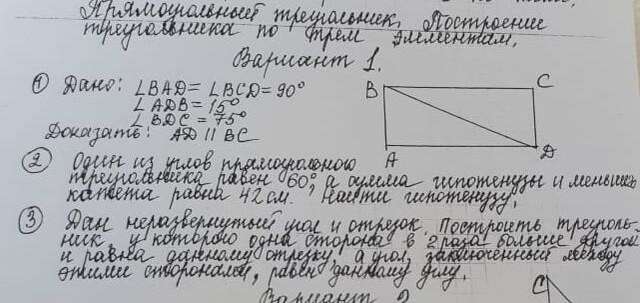 Прямоугольный треугольник. Построение
треугольника по трем элементам.
Вариант 1.
① Дано: ∠BAD = ∠BCD = 90°
∠ADB = 15°
∠BDC = 75°
Доказать: AD || BC
B C
A D
② Один из углов прямоугольного
треугольника равен 60°, а сумма гипотенузы и меньшего
катета равна 42 см. Найти гипотенузу.
③ Дан неразвернутый угол и отрезок. Построить треуголь-
ник, у которого одна сторона в 2 раза больше другой
и равна данному отрезку, а угол, заключенный между
этими сторонами, равен данному углу.
Вариант 2
C